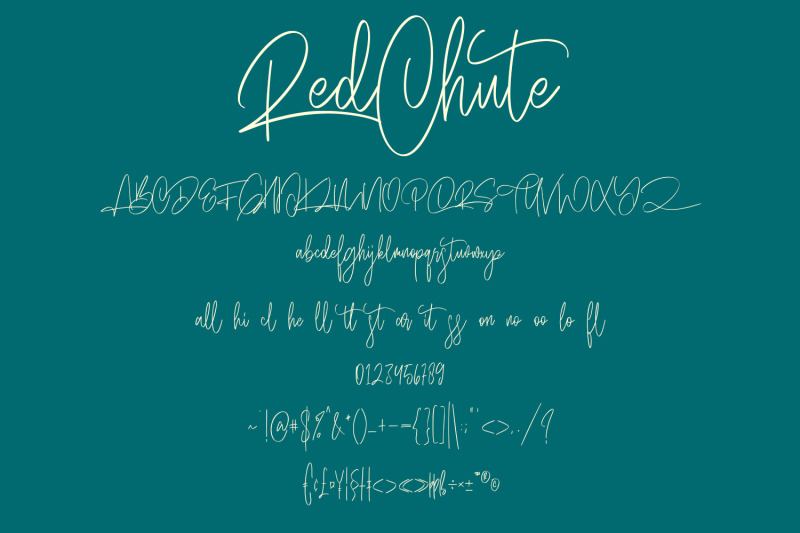 Red Chute
ABCDEFGHIJKLMNOPQRSTUVWXYZ
abcdefghijklmnopqrstuvwxyz
all hi cl he ll tt st ar it ss on no oo lo fl
0123456789
~!@#$%^&*()_+-={}[]|\:;"'<>,./?